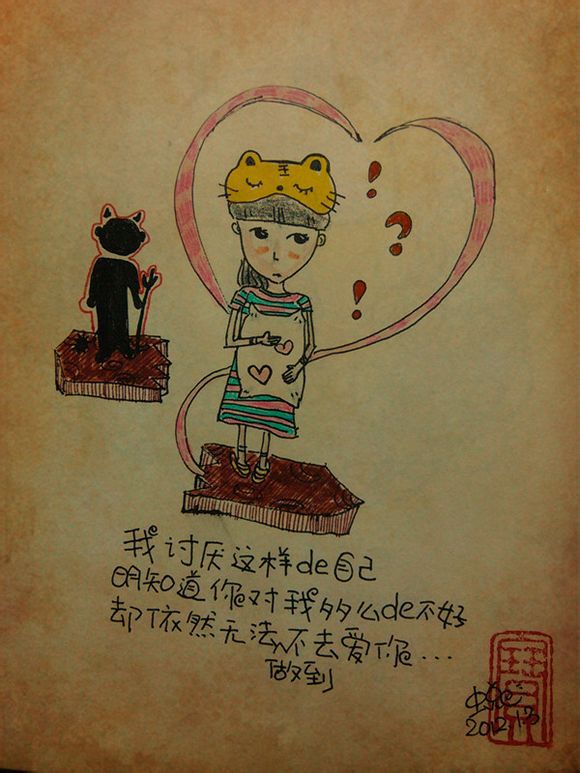 我讨厌这样de自己
明知道你对我多么de不好
却依然无法不去爱你...
做到